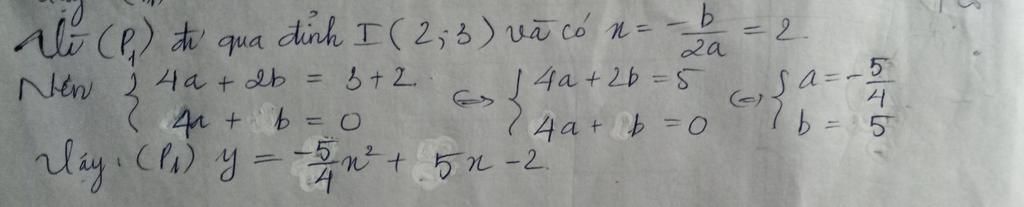 Vì (P₁) đi qua đỉnh I(2;3) và có x = -b/2a = 2
Nên { 4a + 2b = 3+2 ⇔ { 4a + 2b = 5 ⇔ { a = -5/4
4a + b = 0 4a + b = 0 b = 5
Vậy. (P₁) y = -5/4x² + 5x - 2.